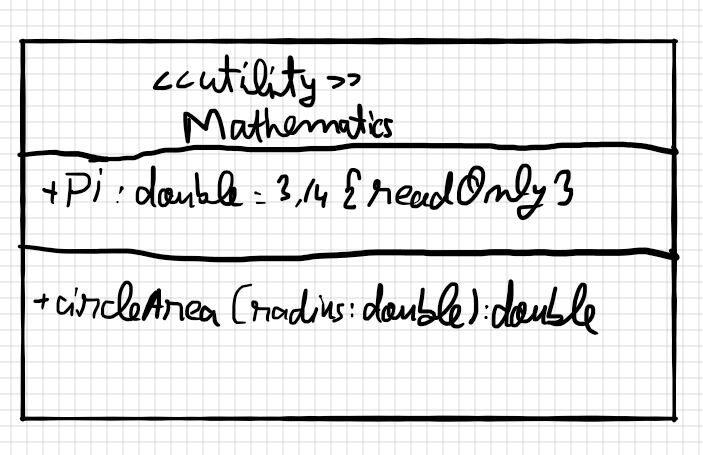 <<utility>>
Mathematics
+Pi : double = 3,14 {readOnly}
+circleArea (radius: double): double